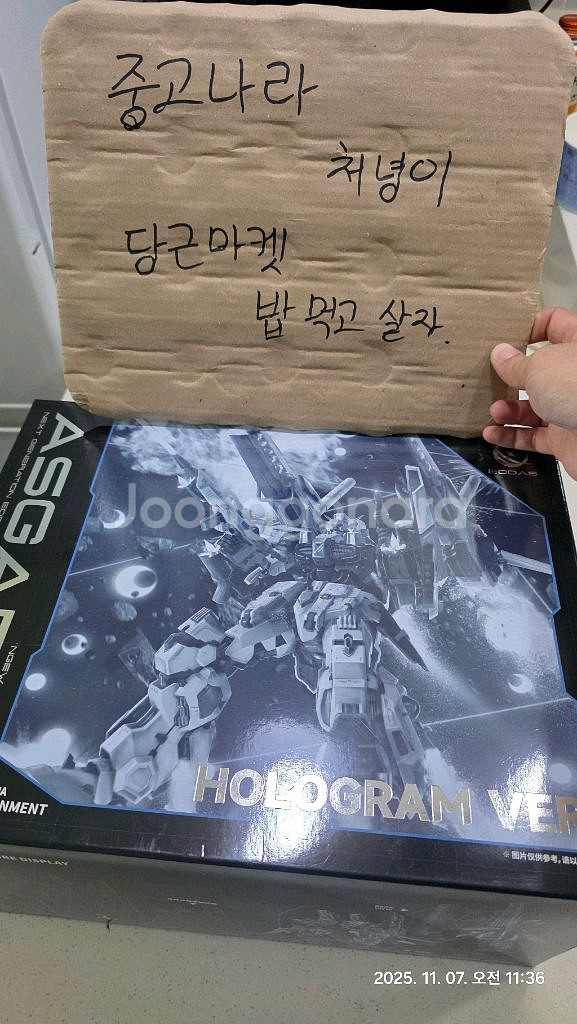 중고나라
처녕이
당근마켓
밥 먹고 살자.
NEXT GENERATION
ASGA
BODAS
Joonggonara
HOLOGRAM VER
NMENT
RE DISPLAY
※ 图片仅供参考, 请以
2025. 11. 07. 오전 11:36